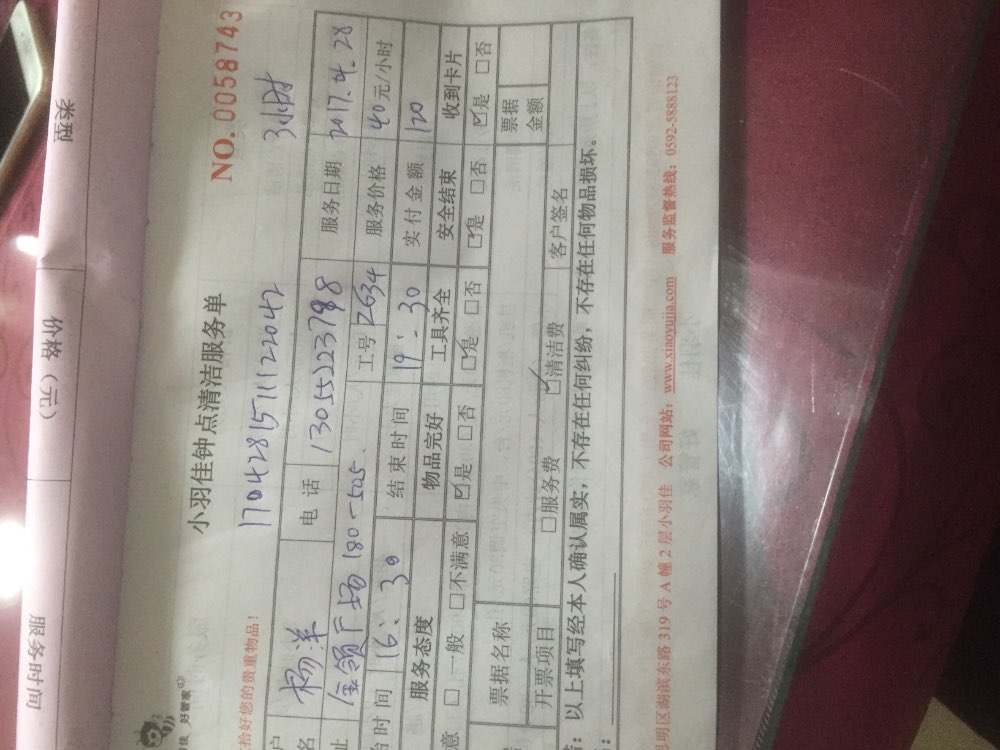 类型
价格（元）
服务时间
好管家
小羽佳钟点清洁服务单
NO.0058743
拾好您的贵重物品！
17042815111122042
3小时
名 杨洋 电话 13055223798 服务日期 2017.4.28
址 金领广场180-505 工号 2634 服务价格 40元/小时
时间 16：30 结束时间 19：30 实付金额 120
服务态度 物品完好 工具齐全 安全结束 收到卡片
意 □一般 □不满意 ☑是 □否 ☑是 □否 ☑是 □否 ☑是 □否
票据名称 票据金额
开票项目 □服务费 ☑清洁费 客户签名
：以上填写经本人确认属实，不存在任何纠纷，不存在任何物品损坏。
思明区湖滨东路 319 号 A 幢 2 层小羽佳 公司网站：www.xiaoyujia.com 服务监督热线：0592-5888123